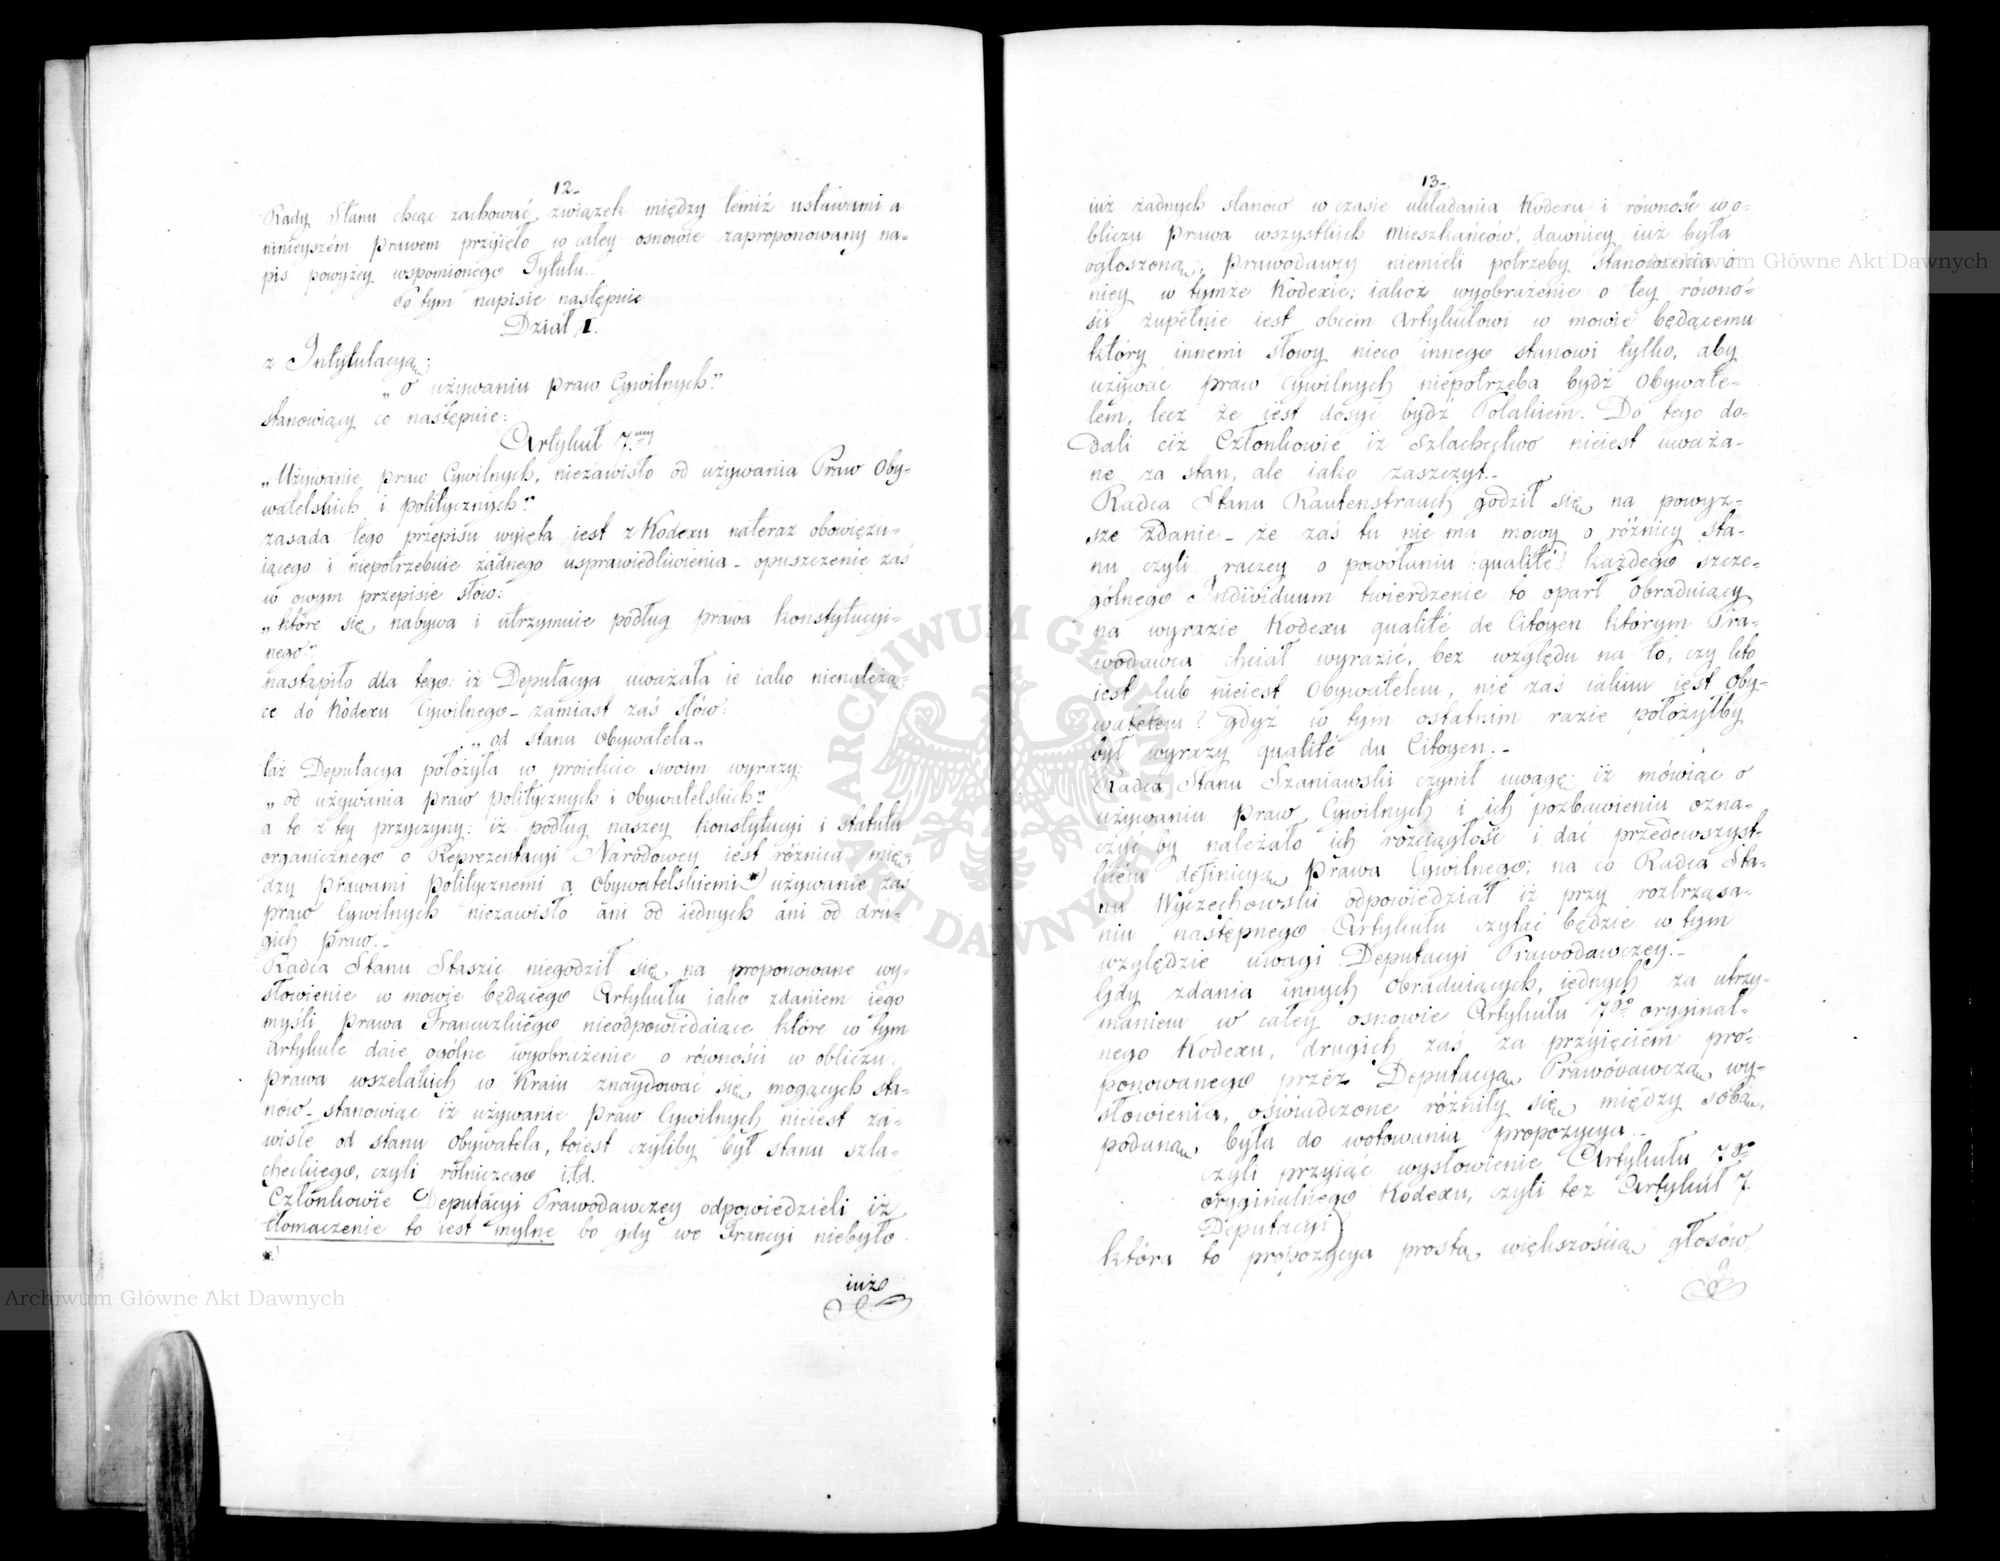 12.
Rady Stanu chcąc zachować związek między temiż ustawami a
ninieyszém prawem przyięto w całey osnowie zaproponowany na-
pis powyżey wspomionego Tytułu.-
Po tym napisie następuie
Dział I.
z Intytulacyą:
„o używaniu praw Cywilnych."
stanowiący co następuie:
Artykuł 7.my
„Używanie praw Cywilnych, niezawisło od używania Praw Oby-
watelskich i politycznych."
zasada tego przepisu wyięta iest z Kodexu nateraz obowięzu-
iącego i niepotrzebuie żadnego usprawiedliwienia - opuszczenie zaś
w owym przepisie słów:
„które się nabywa i utrzymuie podług prawa Konstytucyi-
nego".
nastąpiło dla tego: iż Deputacya uważała ie iako nienależą-
ce do Kodexu Cywilnego - zamiast zaś słów:
„od stanu Obywatela„
taż Deputacya położyła w proiekcie swoim wyrazy:
„od używania praw politycznych i obywatelskich"
a to z tey przyczyny: iż podług naszey Konstytucyi i statutu
organicznego o Reprezentacyi Narodowey iest różnica mię-
dzy prawami politycznemi a obywatelskiemi *) używanie zaś
praw Cywilnych niezawisło ani od iednych ani od dru-
gich praw.-
Radca Stanu Staszic niegodził się na proponowane wy-
słowienie w mowie będącego Artykułu iako zdaniem iego
myśli prawa Francuzkiego nieodpowiedaiące które w tym
Artykule daie ogólne wyobrażenie o równości w obliczu
prawa wszelakich w Kraiu znaydować się mogących sta-
nów - stanowiąc iż używanie praw Cywilnych nieiest za-
wisłe od stanu Obywatela, toiest czyliby był stanu szla-
checkiego, czyli rolniczego itd.
Członkowie Deputacyi Prawodawczey odpowiedzieli iż
tłomaczenie to iest mylne bo gdy we Francyi niebyło
*)
iuż
13.
iuż żadnych stanów w czasie układania Kodexu i równość w o-
bliczu prawa wszystkich mieszkańców, dawniey iuż była
ogłoszoną; prawodawcy niemieli potrzeby stanowienia o
niey w tymże Kodexie; iakoż wyobrażenie o tey równo-
ści zupełnie iest obcem Artykułowi w mowie będącemu
który innemi słowy nieco innego stanowi tylko, aby
używać praw Cywilnych niepotrzeba bydź Obywate-
lem, lecz że iest dosyć bydź Polakiem. Do tego do-
dali ciż Członkowie iż Szlachectwo nieiest uważa-
ne za stan, ale iako zaszczyt.-
Radca Stanu Rautenstrauch godził się na powyż-
sze zdanie - że zaś tu nie ma mowy o różnicy sta-
nu czyli raczey o powołaniu (:qualité:) każdego szcze-
gólnego Individuum twierdzenie to oparł Obraduiący
na wyrazie Kodexu qualité de Citoyen którym Pra-
wodawca chciał wyrazić, bez względu na to, czy kto
iest lub nieiest Obywatelem, nie zaś iakim iest Oby-
watelem? gdyż w tym ostatnim razie położyłby
był wyrazy qualité du Citoyen.-
Radca Stanu Szaniawski czynił uwagę: iż mówiąc o
używaniu praw Cywilnych i ich pozbawieniu ozna-
czyć by należało ich rozciągłość i dać przedewszyst-
kiem definicyą Prawa Cywilnego; na co Radca Sta-
nu Wyczechowski odpowiedział iż przy roztrząsa-
niu następnego Artykułu czytać będzie w tym
względzie uwagi Deputacyi Prawodawczey.-
Gdy zdania innych Obraduiących, iednych za utrzy-
maniem w całey osnowie Artykułu 7go oryginal-
nego Kodexu, drugich zaś za przyięciem pro-
ponowanego przéz Deputacyą Prawodawczą wy-
słowienia, oświadczone różniły się między sobą,
podaną była do wotowania propozycya.
czyli przyiąć wysłowienie Artykułu 7go
oryginalnego Kodexu, czyli też Artykuł 7.
Deputacyi
która to propozycya prostą większością głosów
Archiwum Główne Akt Dawnych
Archiwum Główne Akt Dawnych
ARCHIWUM GŁÓWNE AKT DAWNYCH